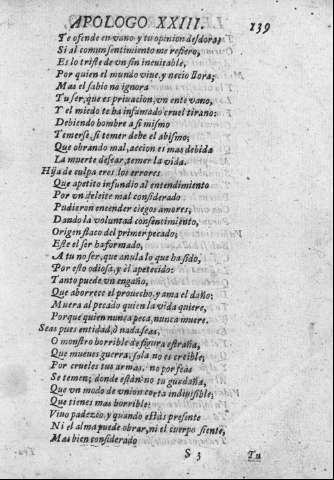 APOLOGO XXIII. 139
Te ofende en vano y tu opinion desdora;
Si al comun sentimiento me refiero,
Es lo triste de vn fin ineuitable,
Por quien el mundo viue, y necio llora;
Mas el sabio no ignora
Tu ser, que es priuacion, vn ente vano,
Y el miedo te ha infamado cruel tirano:
Debiendo hombre a si mismo
Temerse, si temer debe el abismo;
Que obrando mal, accion es mas debida
La muerte desear, temer la vida.
Hija de culpa eres, los errores
Que apetito infundio al entendimiento
Por vn deleite mal considerado
Pudieron encender ciegos amores,
Dando la voluntad consentimiento,
Origen flaco del primer pecado;
Este el ser ha formado,
A tu no ser, que anula lo que ha sido,
Por esto odiosa, y el apetecido:
Tanto puede vn engaño,
Que aborrece el prouecho, y ama el daño;
Muera al pecado quien la vida quiere,
Porque quien nunca peca, nunca muere.
Seas pues entidad, ò nada seas,
O monstro horrible de figura estraña,
Que mueues guerra, sola no es creible;
Por crueles tus armas, no por feas
Se temen; donde estàn no tu guadaña,
Que vn modo de vnion corta indiuisible;
Que tienes mas horrible?
Viuo padezco, y quando estàs presente
Ni el alma puede obrar, ni el cuerpo siente,
Mas bien considerado
S 3 Tu